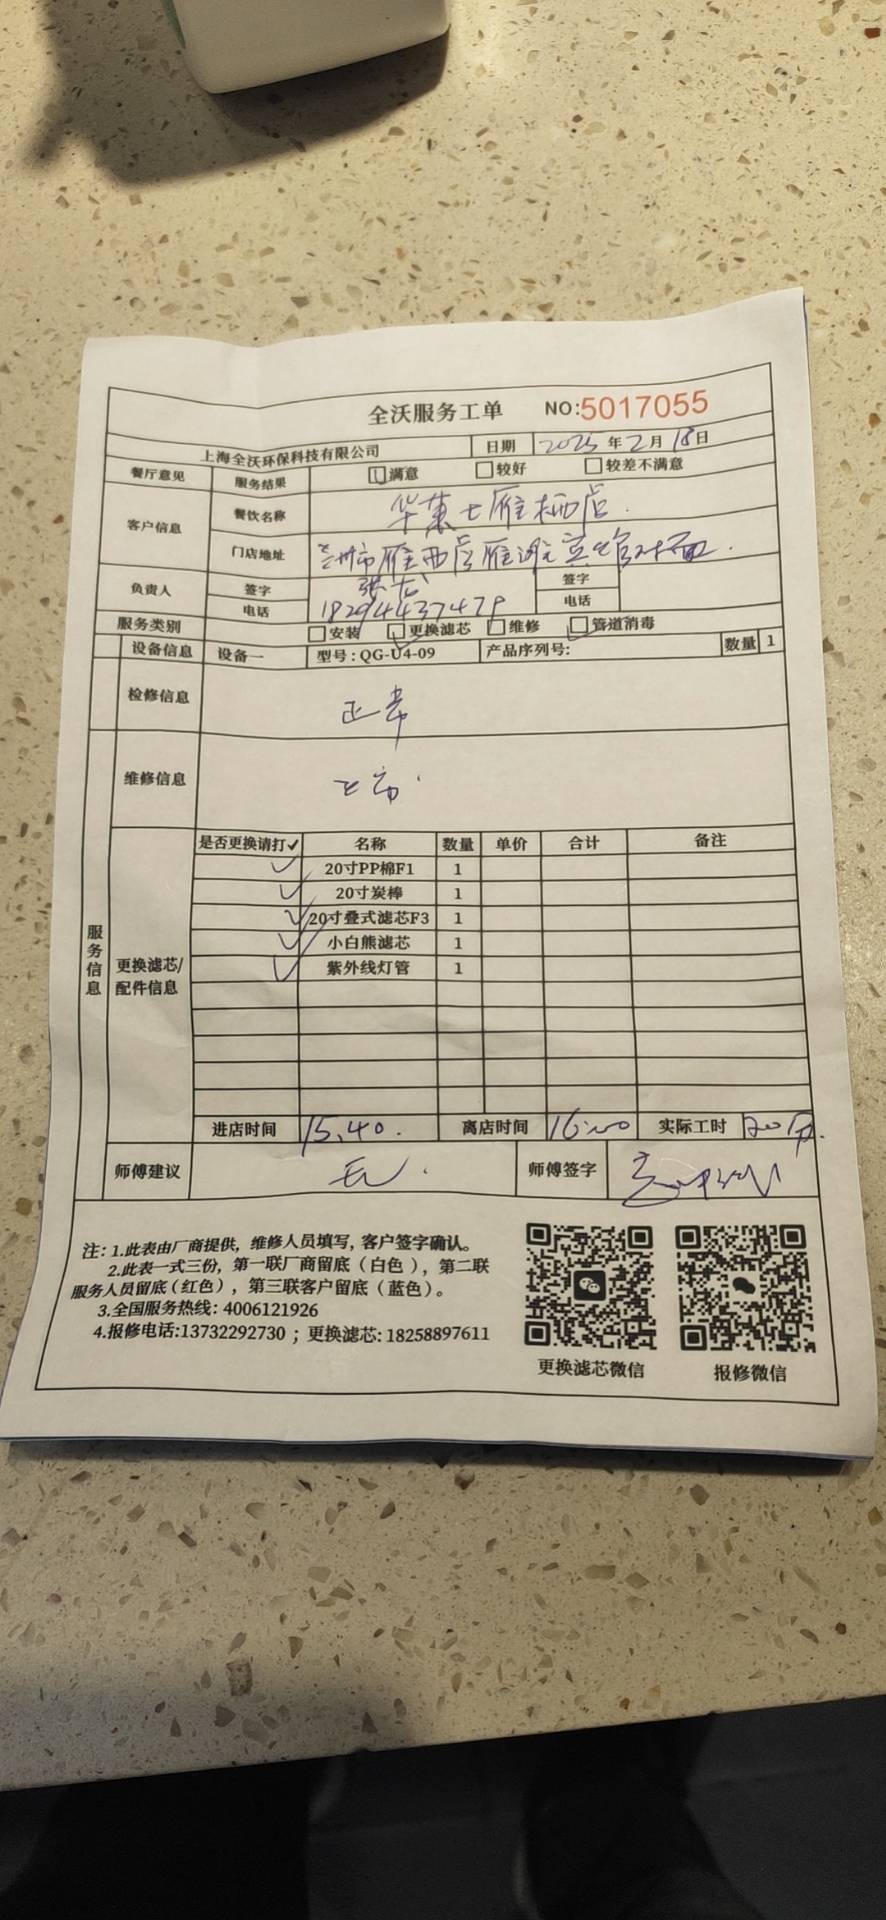 全沃服务工单 NO:5017055
上海全沃环保科技有限公司 日期 2025年2月18日
餐厅意见 服务结果 满意 较好 较差不满意
客户信息 餐饮名称 华莱士雁栖店
门店地址 兰州市雁西店雁滩宾馆对面.
负责人 签字 签字
电话 电话
服务类别 安装 更换滤芯 维修 管道消毒
设备信息 设备一 型号:QG-U4-09 产品序列号: 数量 1
检修信息 正常
维修信息
服务信息
更换滤芯/配件信息
是否更换请打✓ 名称 数量 单价 合计 备注
✓ 20寸PP棉F1 1
✓ 20寸炭棒 1
✓ 20寸叠式滤芯F3 1
✓ 小白熊滤芯 1
✓ 紫外线灯管 1
进店时间 15.40. 离店时间 16:00 实际工时 20分.
师傅建议 无. 师傅签字
注: 1.此表由厂商提供，维修人员填写，客户签字确认。
2.此表一式三份，第一联厂商留底（白色），第二联
服务人员留底（红色），第三联客户留底（蓝色）。
3.全国服务热线: 4006121926
4.报修电话:13732292730；更换滤芯: 18258897611
更换滤芯微信 报修微信